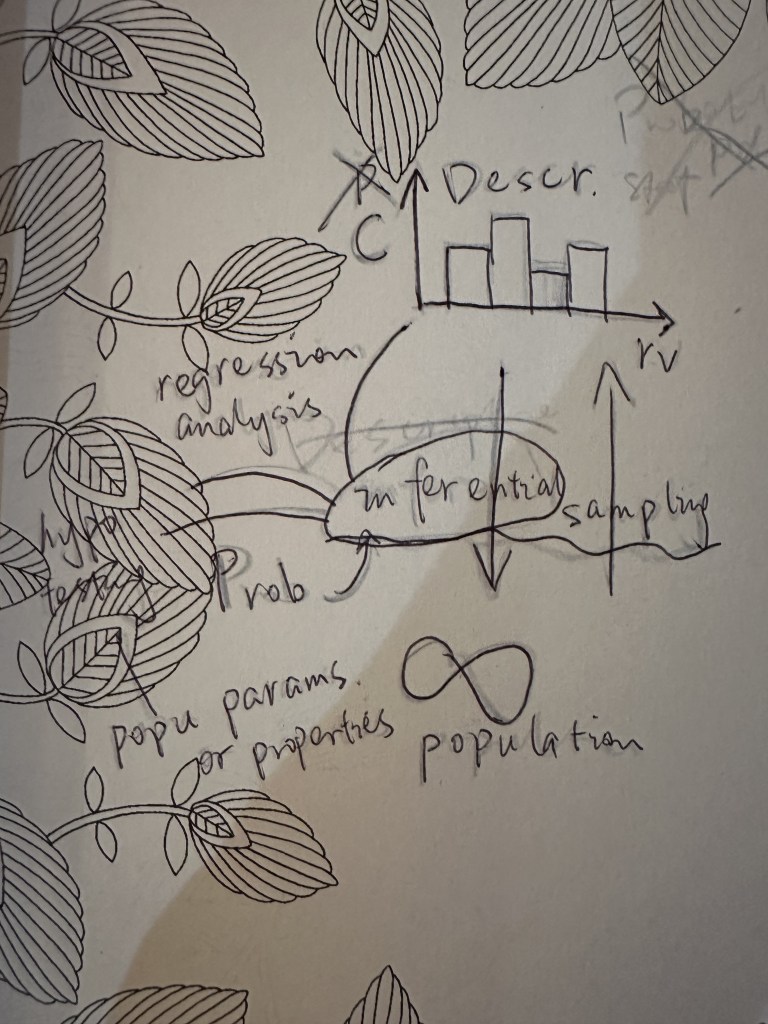 Descr.
C
rv
regression
analysis
inferential
sampling
hypo
testing
Prob
popu params.
or properties
∞
population